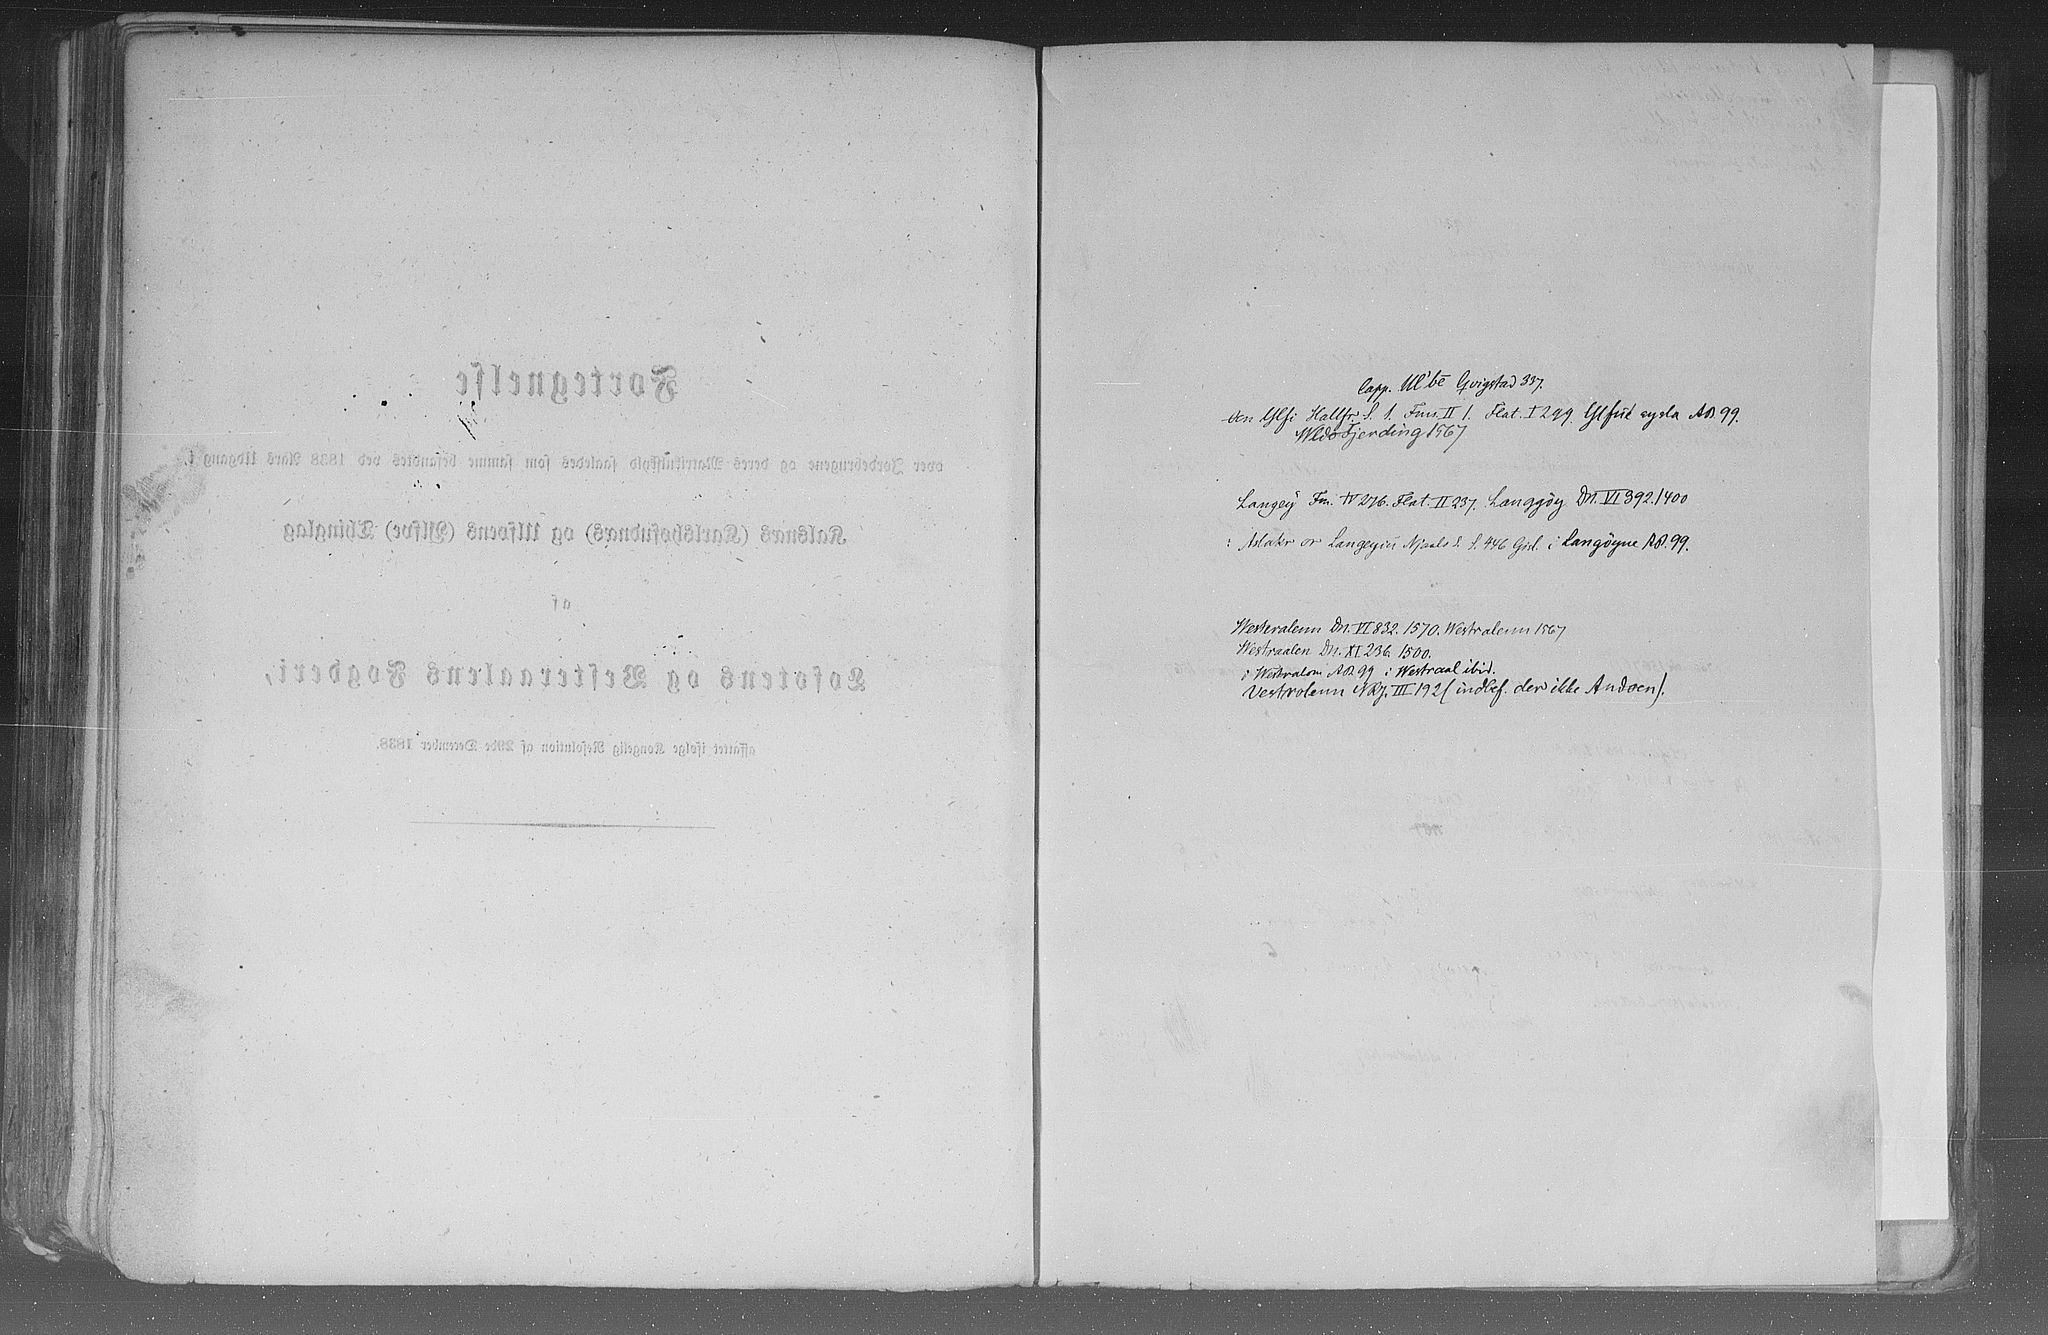 Fortegnelse
over Jordebrugene og deres Matrikulskyld saaledes som samme befandtes ved 1838 Aars Udgang i
Kalsnæs (Karlshofudnæs) og Ulfvens (Ylfve) Thinglag
af
Lofotens og Vesteraalens Fogderi,
affattet ifølge Kongelig Resolution af 29de December 1838.
Capp. Ul'be Qvigstad 337.
den Ylfi Hallfr. S. 1. Fms. II 1. Flat. I 299. Ylfue sysla AB 99.
Wldø Fjerding 1567
Langey Fm. IV 276. Flat. II 237. Langgøy Dn. VI 392. 1400
: Aslakr or Langeyiu Njaals S. S. 446 Gisl. i Langøyne AB. 99.
Westeralenn Dn. VI 832. 1570. Westralenn 1567
Westraalen Dn. XI 236. 1500.
i Westralom AB 99 i Westraal ibid.
Vestrolenn NRJ. III 192 (indbef. der ikke Andøen).